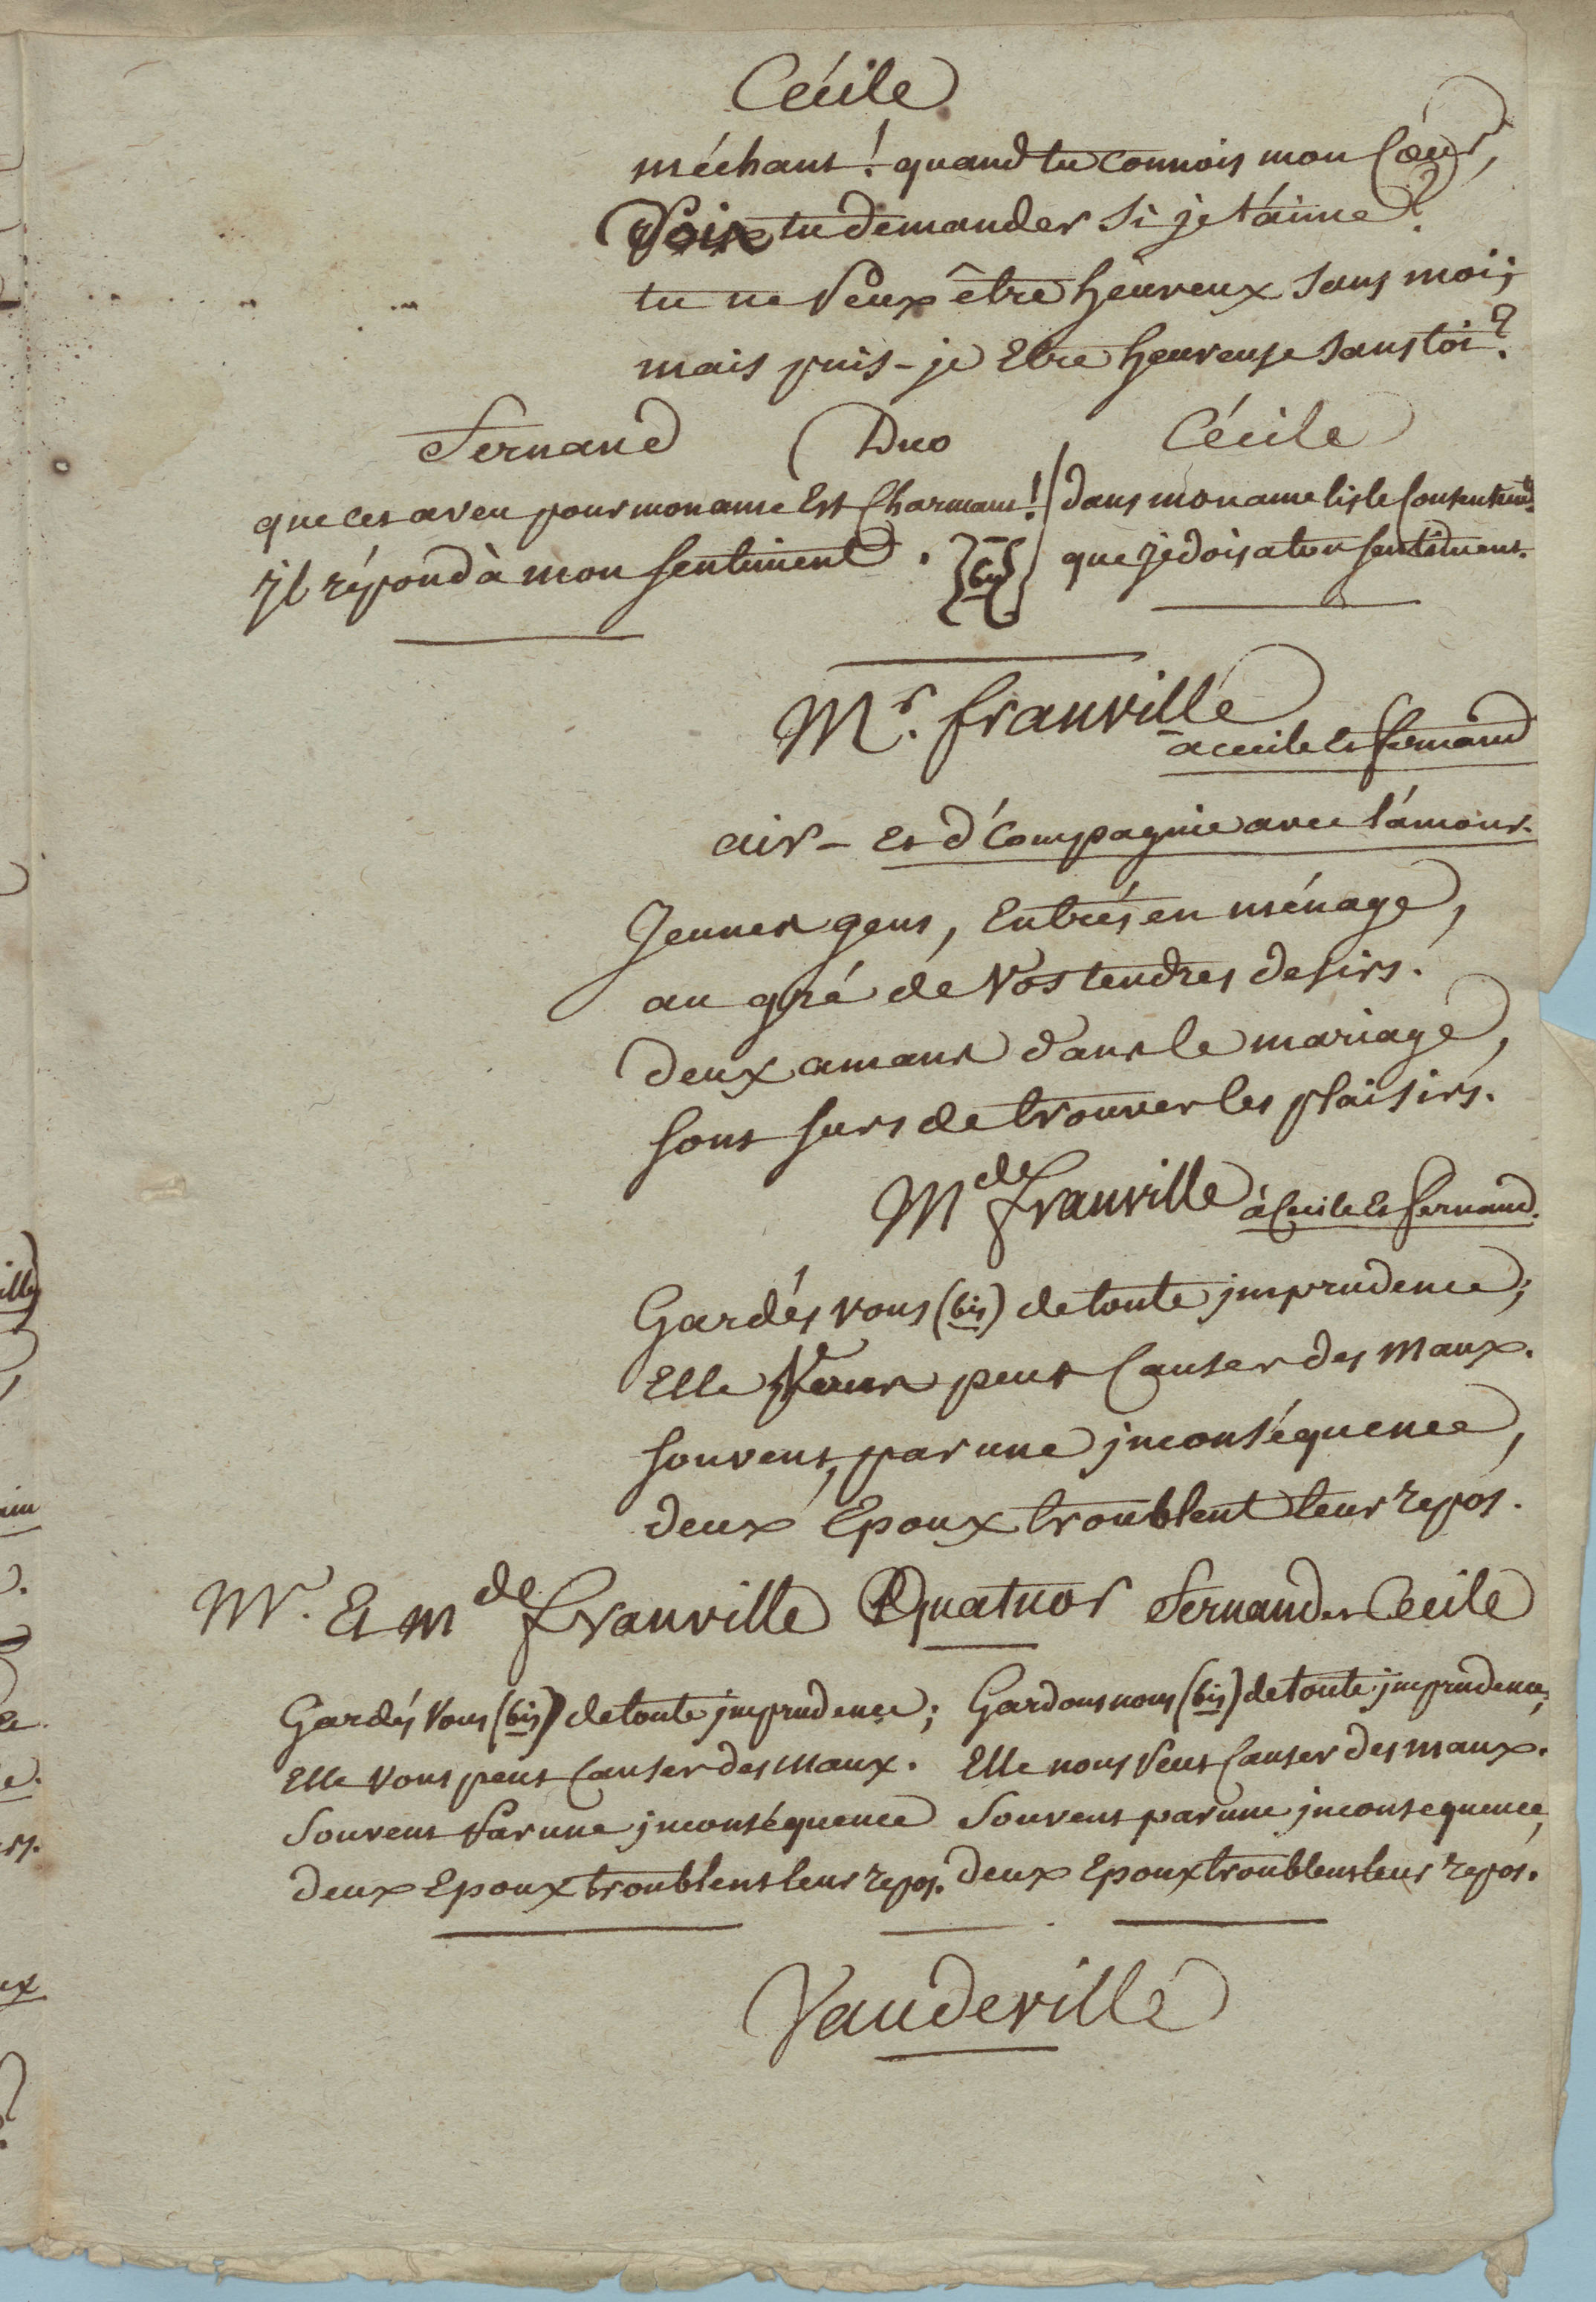 Cécile
méchant! quand tu connois mon Cœur,
Dois tu demander si je t'aime?
tu ne Peux être heureux sans moi;
mais puis-je Etre heureuse sans toi?
Fernand Duo Cécile
que cet aveu pour mon ame Est Charmant!
jl répond à mon sentiment. (bis)
dans mon ame lis le Contentemt
que je dois a ton sentiment.
Mr. franville
a cecile Et fernand
air - Et d' Compagnie avec l'amour.
Jeunes gens, Entrés en ménage,
au gré de Vos tendres desirs.
deux amans dans le mariage,
sont surs de trouver les plaisirs.
Mde franville à Cecile Et fernand.
Gardés vous (bis) de toute jmprudence;
Elle Vous peut Causer des Maux.
souvent, par une jnconséquence,
deux Epoux troublent leur repos.
Mr. Et Mde franville Quatuor Fernand et Cecile
Gardés Vous (bis) de toute jmprudence;
Elle Vous peut Causer des Maux.
Souvent Par une jnconséquence
deux Epoux troublent leur repos.
Gardons nous (bis) de toute jmprudence;
Elle nous Peut Causer des maux.
Souvent par une jnconsequence,
deux Epoux troublent leur repos.
Vaudeville